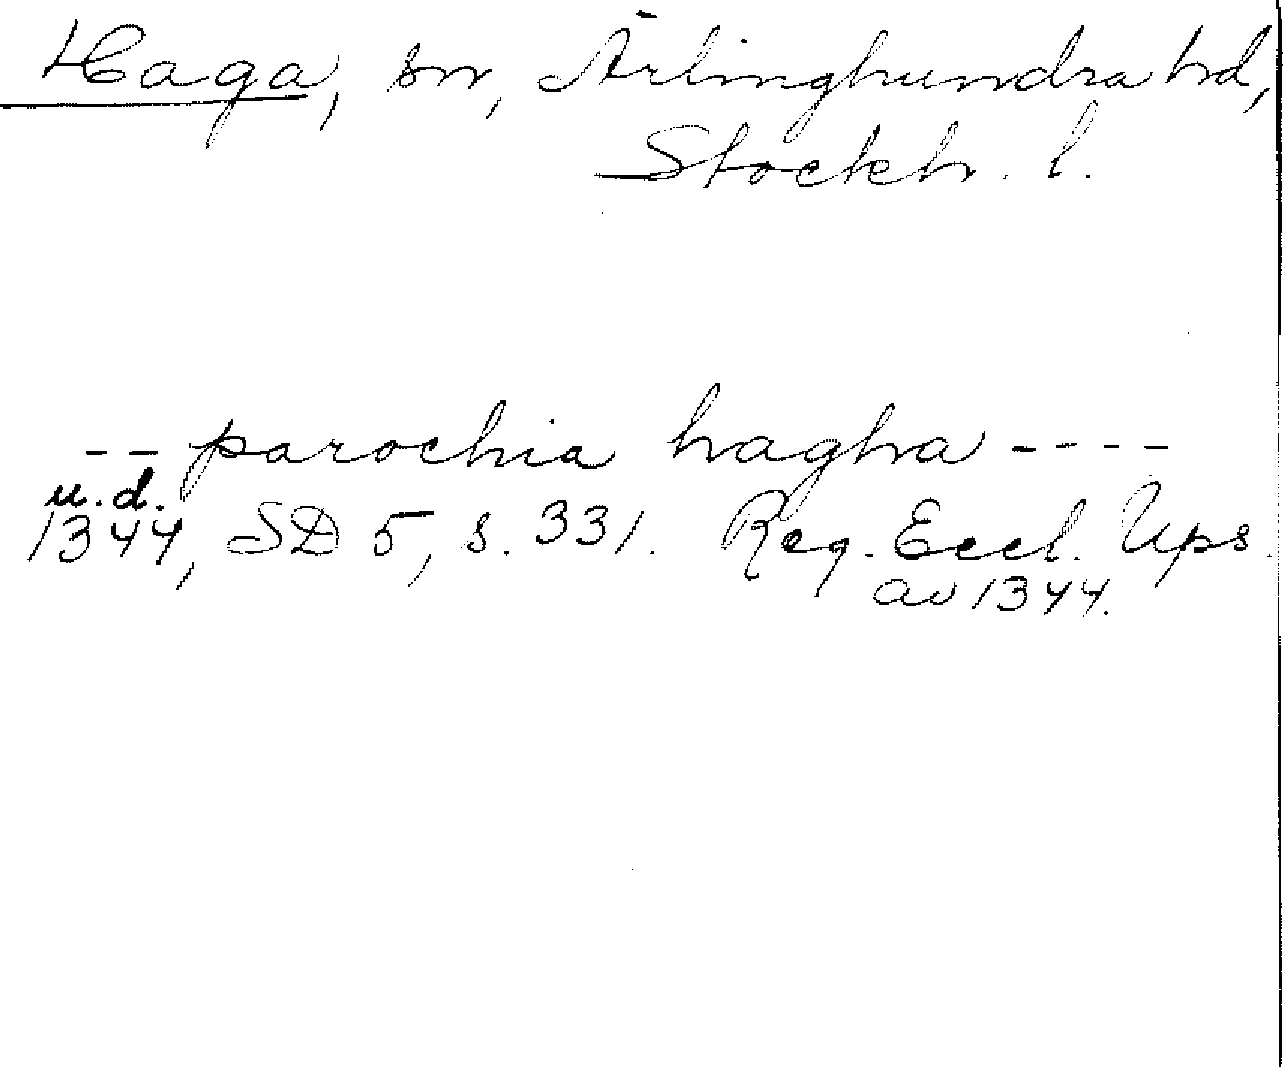 Haga, sn, Ärlinghundra hd,
Stockh. l.
-- parochia hagha ----
u.d.
1344, SD 5, s. 331. Reg. Eccl. Ups.
av 1344.